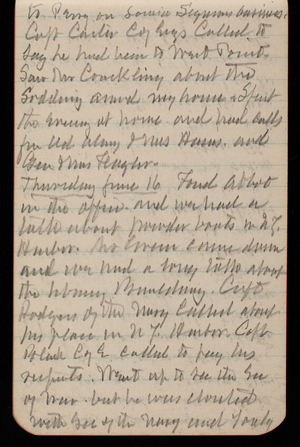 to Perry on Louis Seymour business.
Capt Carter C of Engs Called to
say he had been to West Point.
Saw Mr Conckling about the
Sodding around my home. Spent
the Evening at home and had calls
from Col Alony & Mrs Harris, and
Gen & Mrs Flagler.
Thursday June 16 Found Abbot
in the office and we had a
talk about powder boats in N.Y.
Harbor. Mr Green came down
and we had a long talk about
the library Building. Capt
Rodgers of the Navy Called about
his place in N.Y. Harbor. Capt
Black C of E. called to pay his
respects. Went up to see the Sec
of War. but he was closeted
with Sec of the Navy and I only